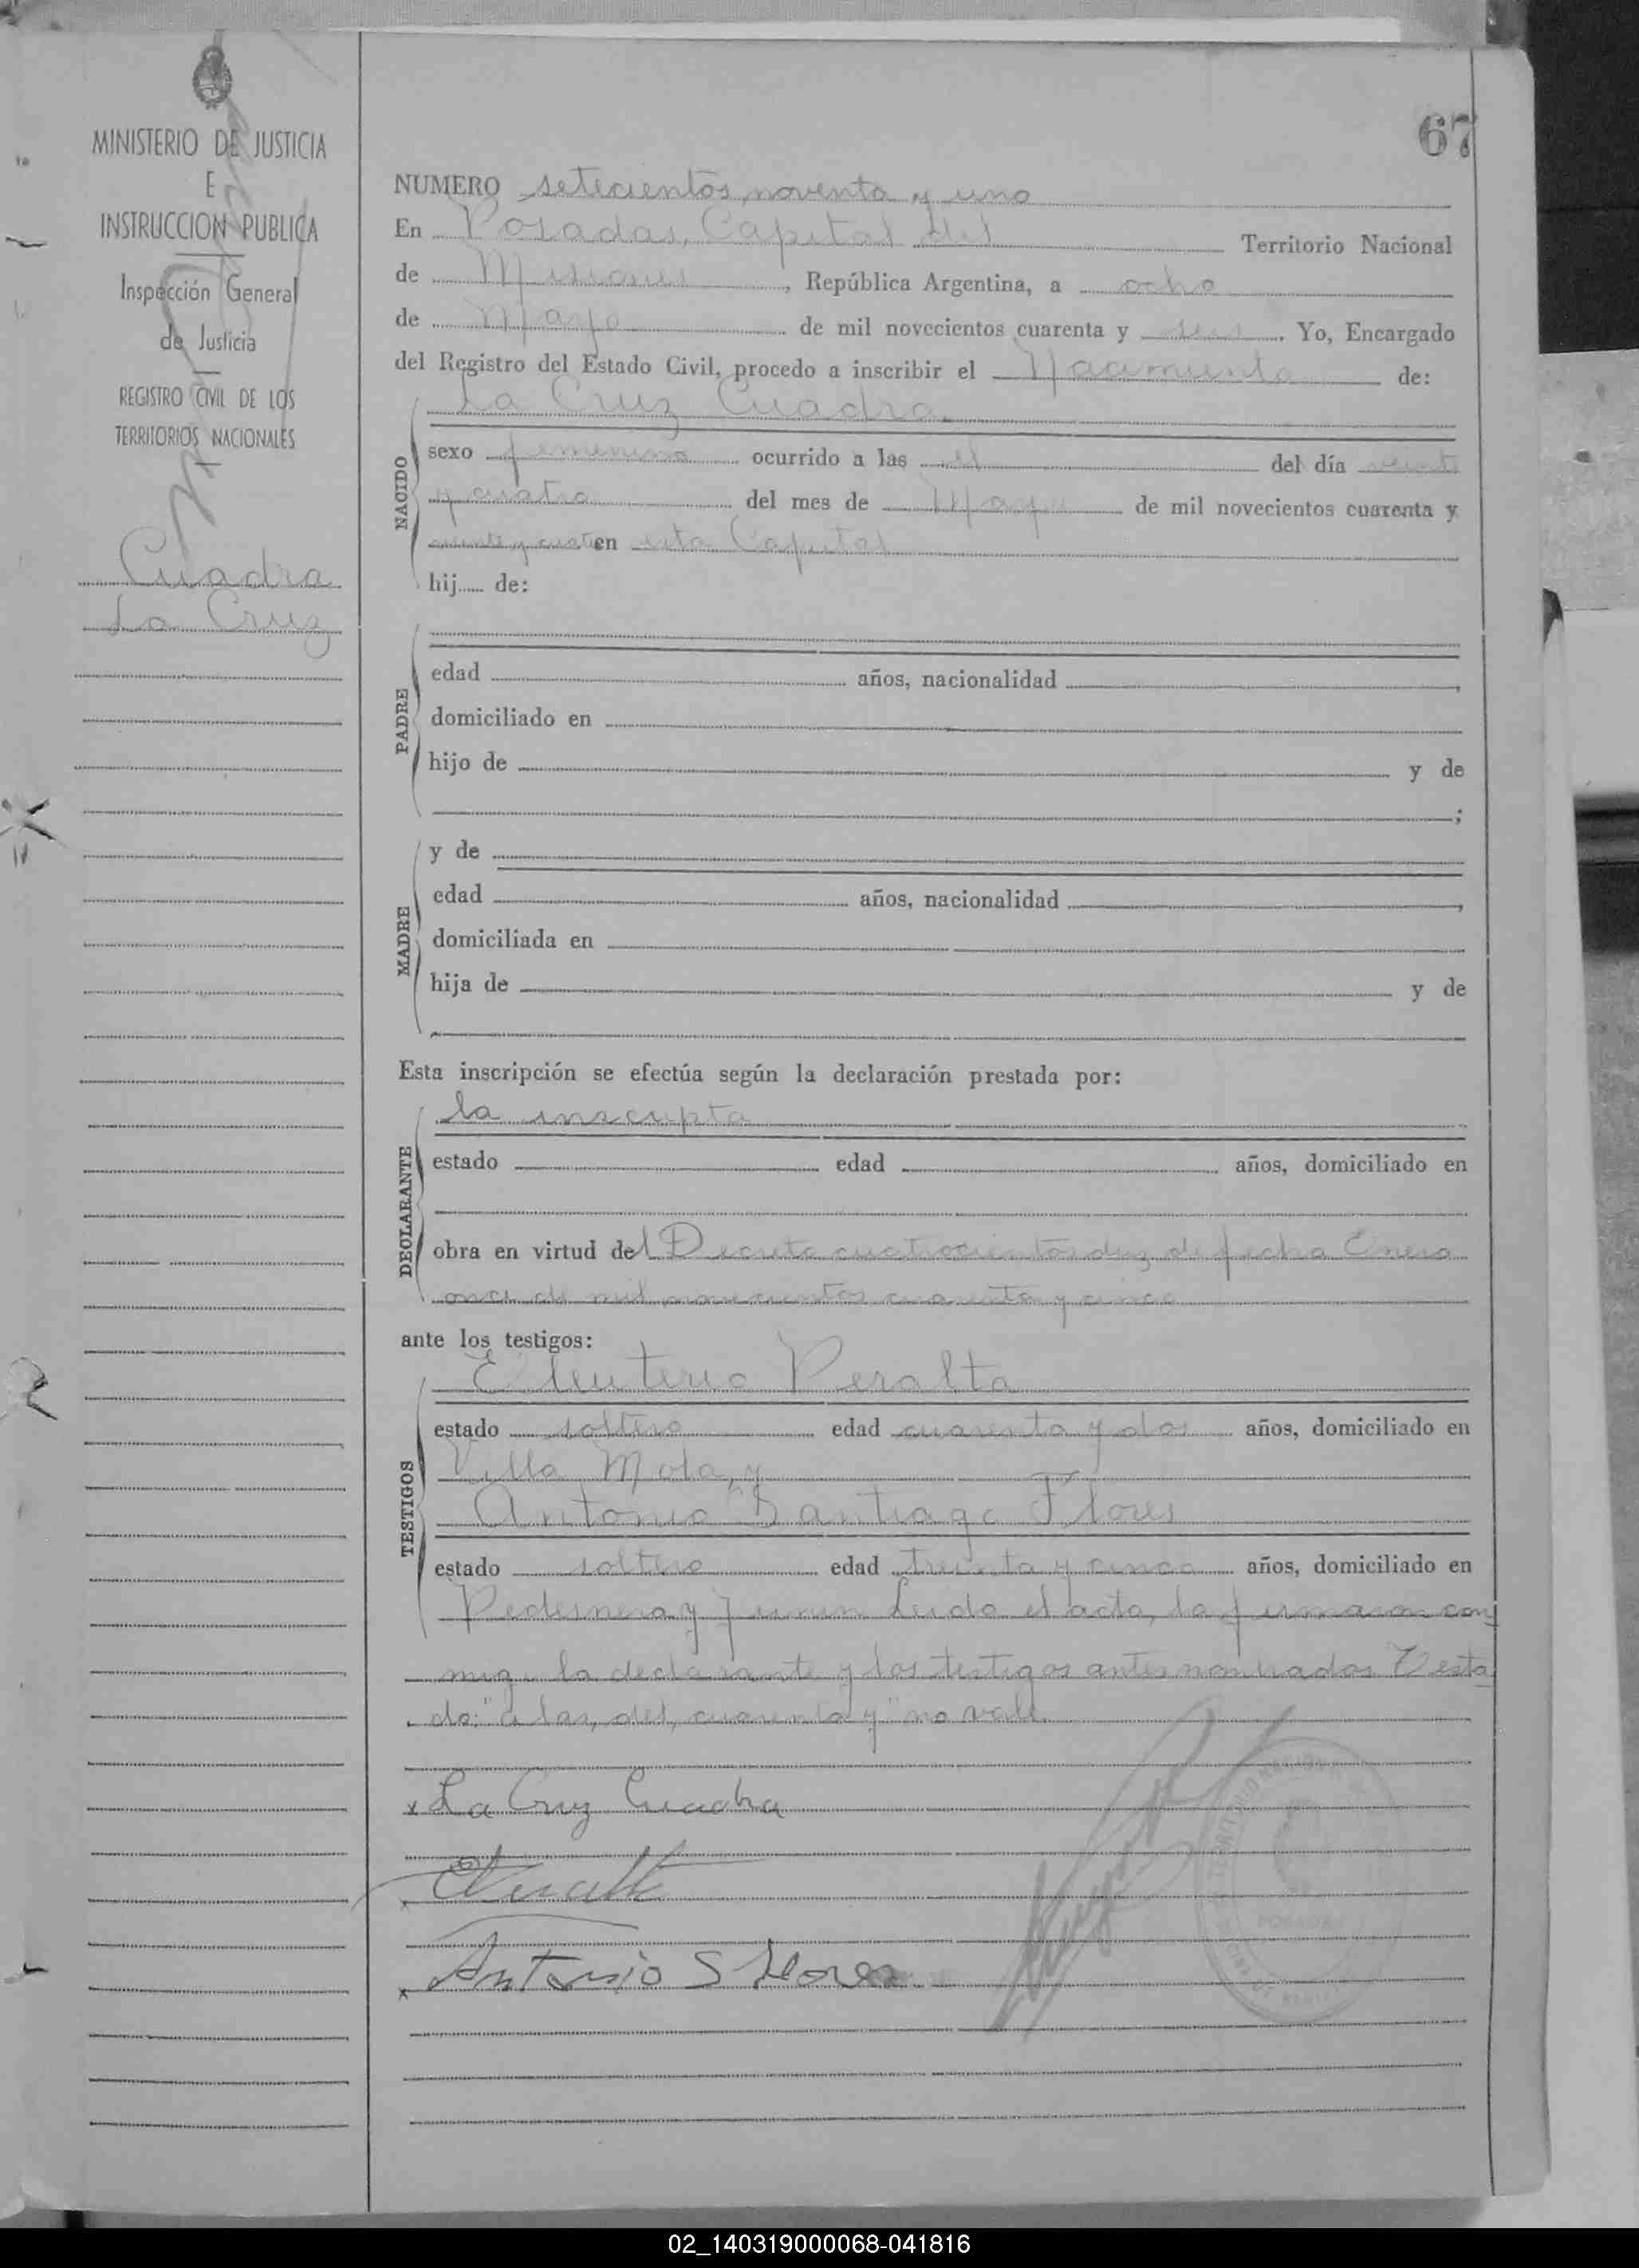 MINISTERIO DE JUSTICIA
E
INSTRUCCION PUBLICA
Inspección General
de Justicia
REGISTRO CIVIL DE LOS
TERRITORIOS NACIONALES
Cuadra
La Cruz
67
NUMERO setecientos noventa y uno
En Posadas, Capital del Territorio Nacional
de Misiones, República Argentina, a ocho
de Mayo de mil novecientos cuarenta y seis. Yo, Encargado
del Registro del Estado Civil, procedo a inscribir el Nacimiento de:
La Cruz Cuadra
NACIDO
sexo femenino ocurrido a las el del día veinti
y cuatro del mes de Mayo de mil novecientos cuarenta y
veinte y cuatro en esta Capital
hij de:
PADRE
edad años, nacionalidad ,
domiciliado en
hijo de y de
;
MADRE
y de
edad años, nacionalidad ,
domiciliada en
hija de y de
Esta inscripción se efectúa según la declaración prestada por:
DECLARANTE
la inscripta
estado edad años, domiciliado en
obra en virtud del Decreto cuatrocientos diez de fecha Enero
once de mil novecientos cuarenta y cinco
ante los testigos:
TESTIGOS
Eleuterio Peralta
estado soltero edad cuarenta y dos años, domiciliado en
Villa Mota, y
Antonio Santiago Flores
estado soltero edad treinta y cinco años, domiciliado en
Pedernera y Junin Leida el acta, la firmaron con
migo la declarante y los testigos antes nombrados Testa
do: "a las, del, cuarenta y" no vale.
x La Cruz Cuadra
x EPeralta
x Antonio S Flores
POSADAS
02_140319000068-041816